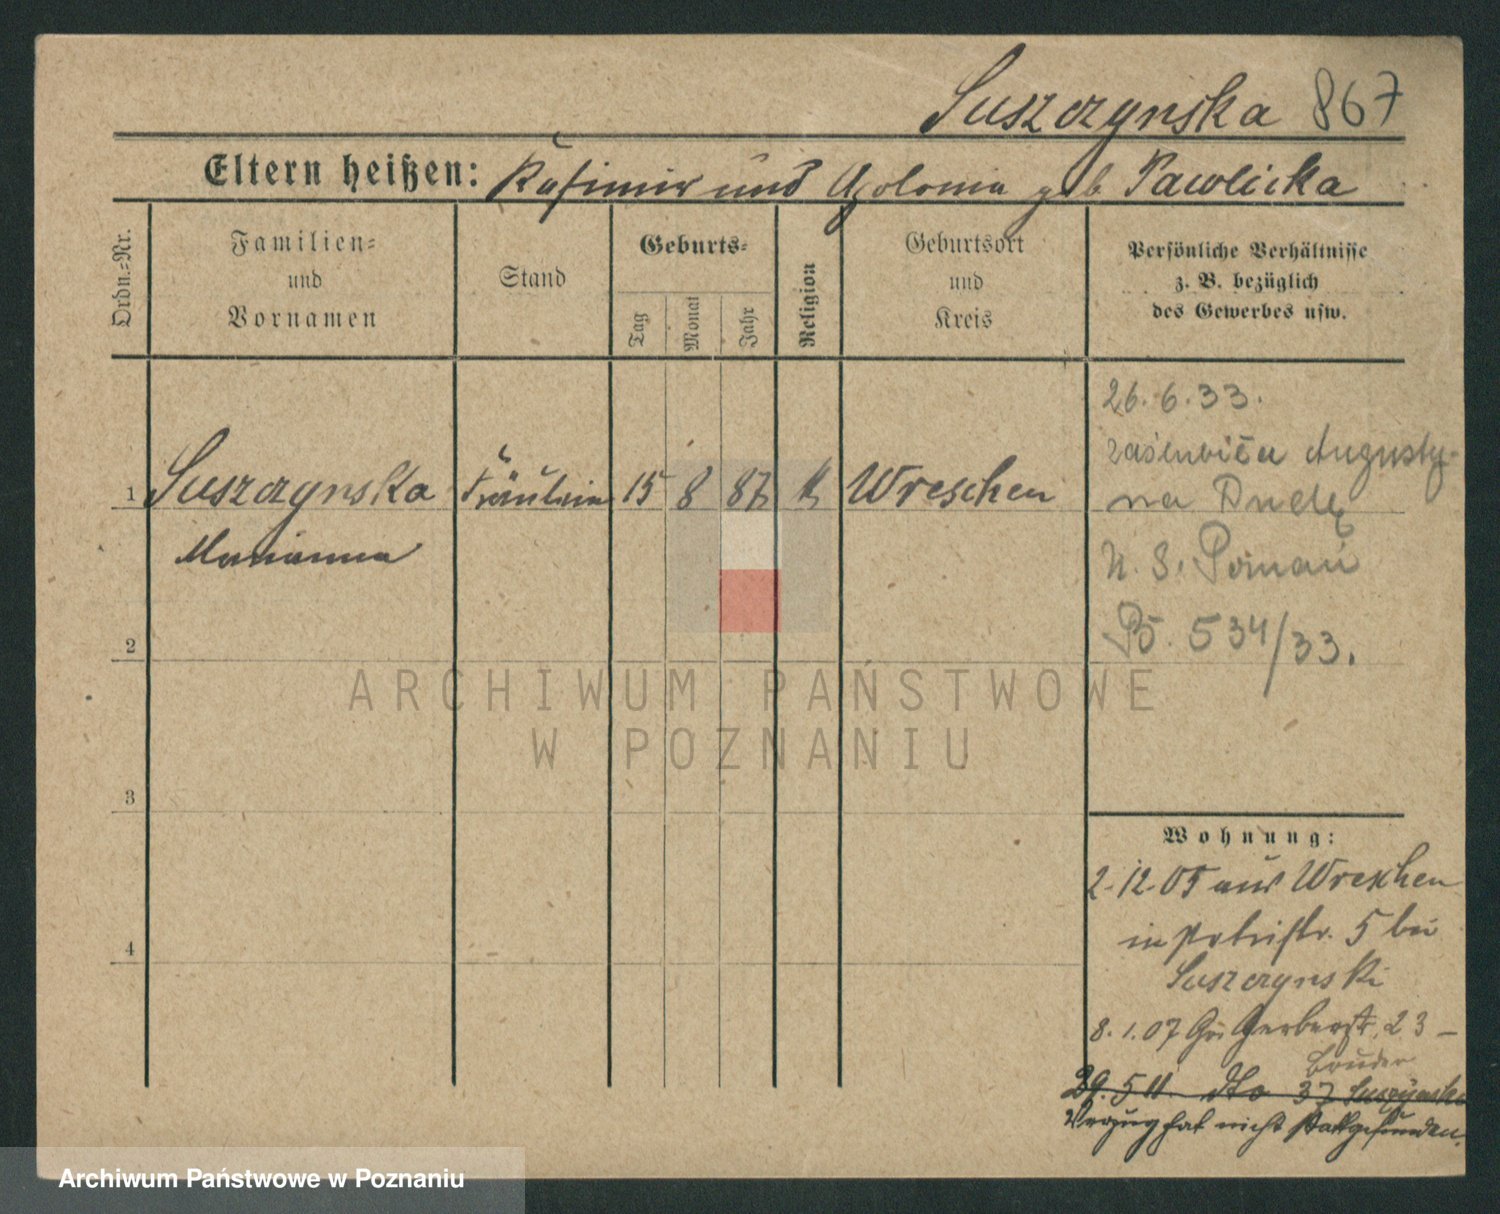 Suszczynska 867
Eltern heißen: Kasimir und Apolonia geb. Pawlicka
Ordn.-Nr.
Familien-
und
Vornamen
Stand
Geburts-
Tag
Monat
Jahr
Religion
Geburtsort
und
Kreis
Persönliche Verhältnisse
z. B. bezüglich
des Gewerbes usw.
1 Suszczynska Fräulein 15 8 87 k Wreschen
Marianna
2
3
4
26.6.33.
zaślubiła Augusty-
na Dudę
U. S. Poznań
534/33.
Wohnung:
2.12.05 aus Wreschen
in 5 bei
Suszczynski
8.1.07 Gr. Gerberstr. 23 –
Bruder
29.5.11. dto 37 Suszynski
Verzug hat nicht stattgefunden.
ARCHIWUM PAŃSTWOWE
W POZNANIU
Archiwum Państwowe w Poznaniu